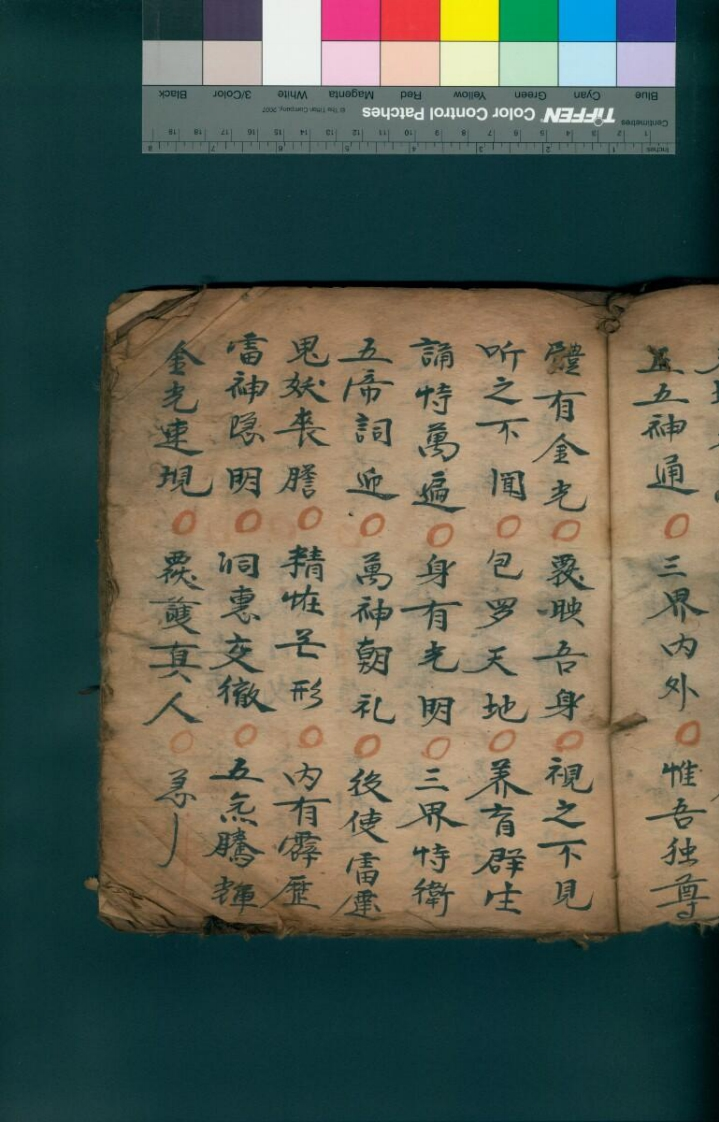 五神通〇三界内外〇惟吾独尊
體有金光〇覆映吾身〇視之不見
听之不闻〇包罗天地〇养育群生
誦持萬遍〇身有光明〇三界侍衛
五帝詞迎〇萬神朝礼〇役使雷霆
鬼妖丧膽〇精恠芒形〇内有霹歷
雷神隠明〇洞惠交徹〇五炁騰輝
金光速現〇覆護真人〇急
Black
3/Color
White
Magenta
Red
Yellow
Green
Cyan
Blue
© The Tiffen Company, 2007
TIFFEN Color Control Patches
Centimetres
Inches